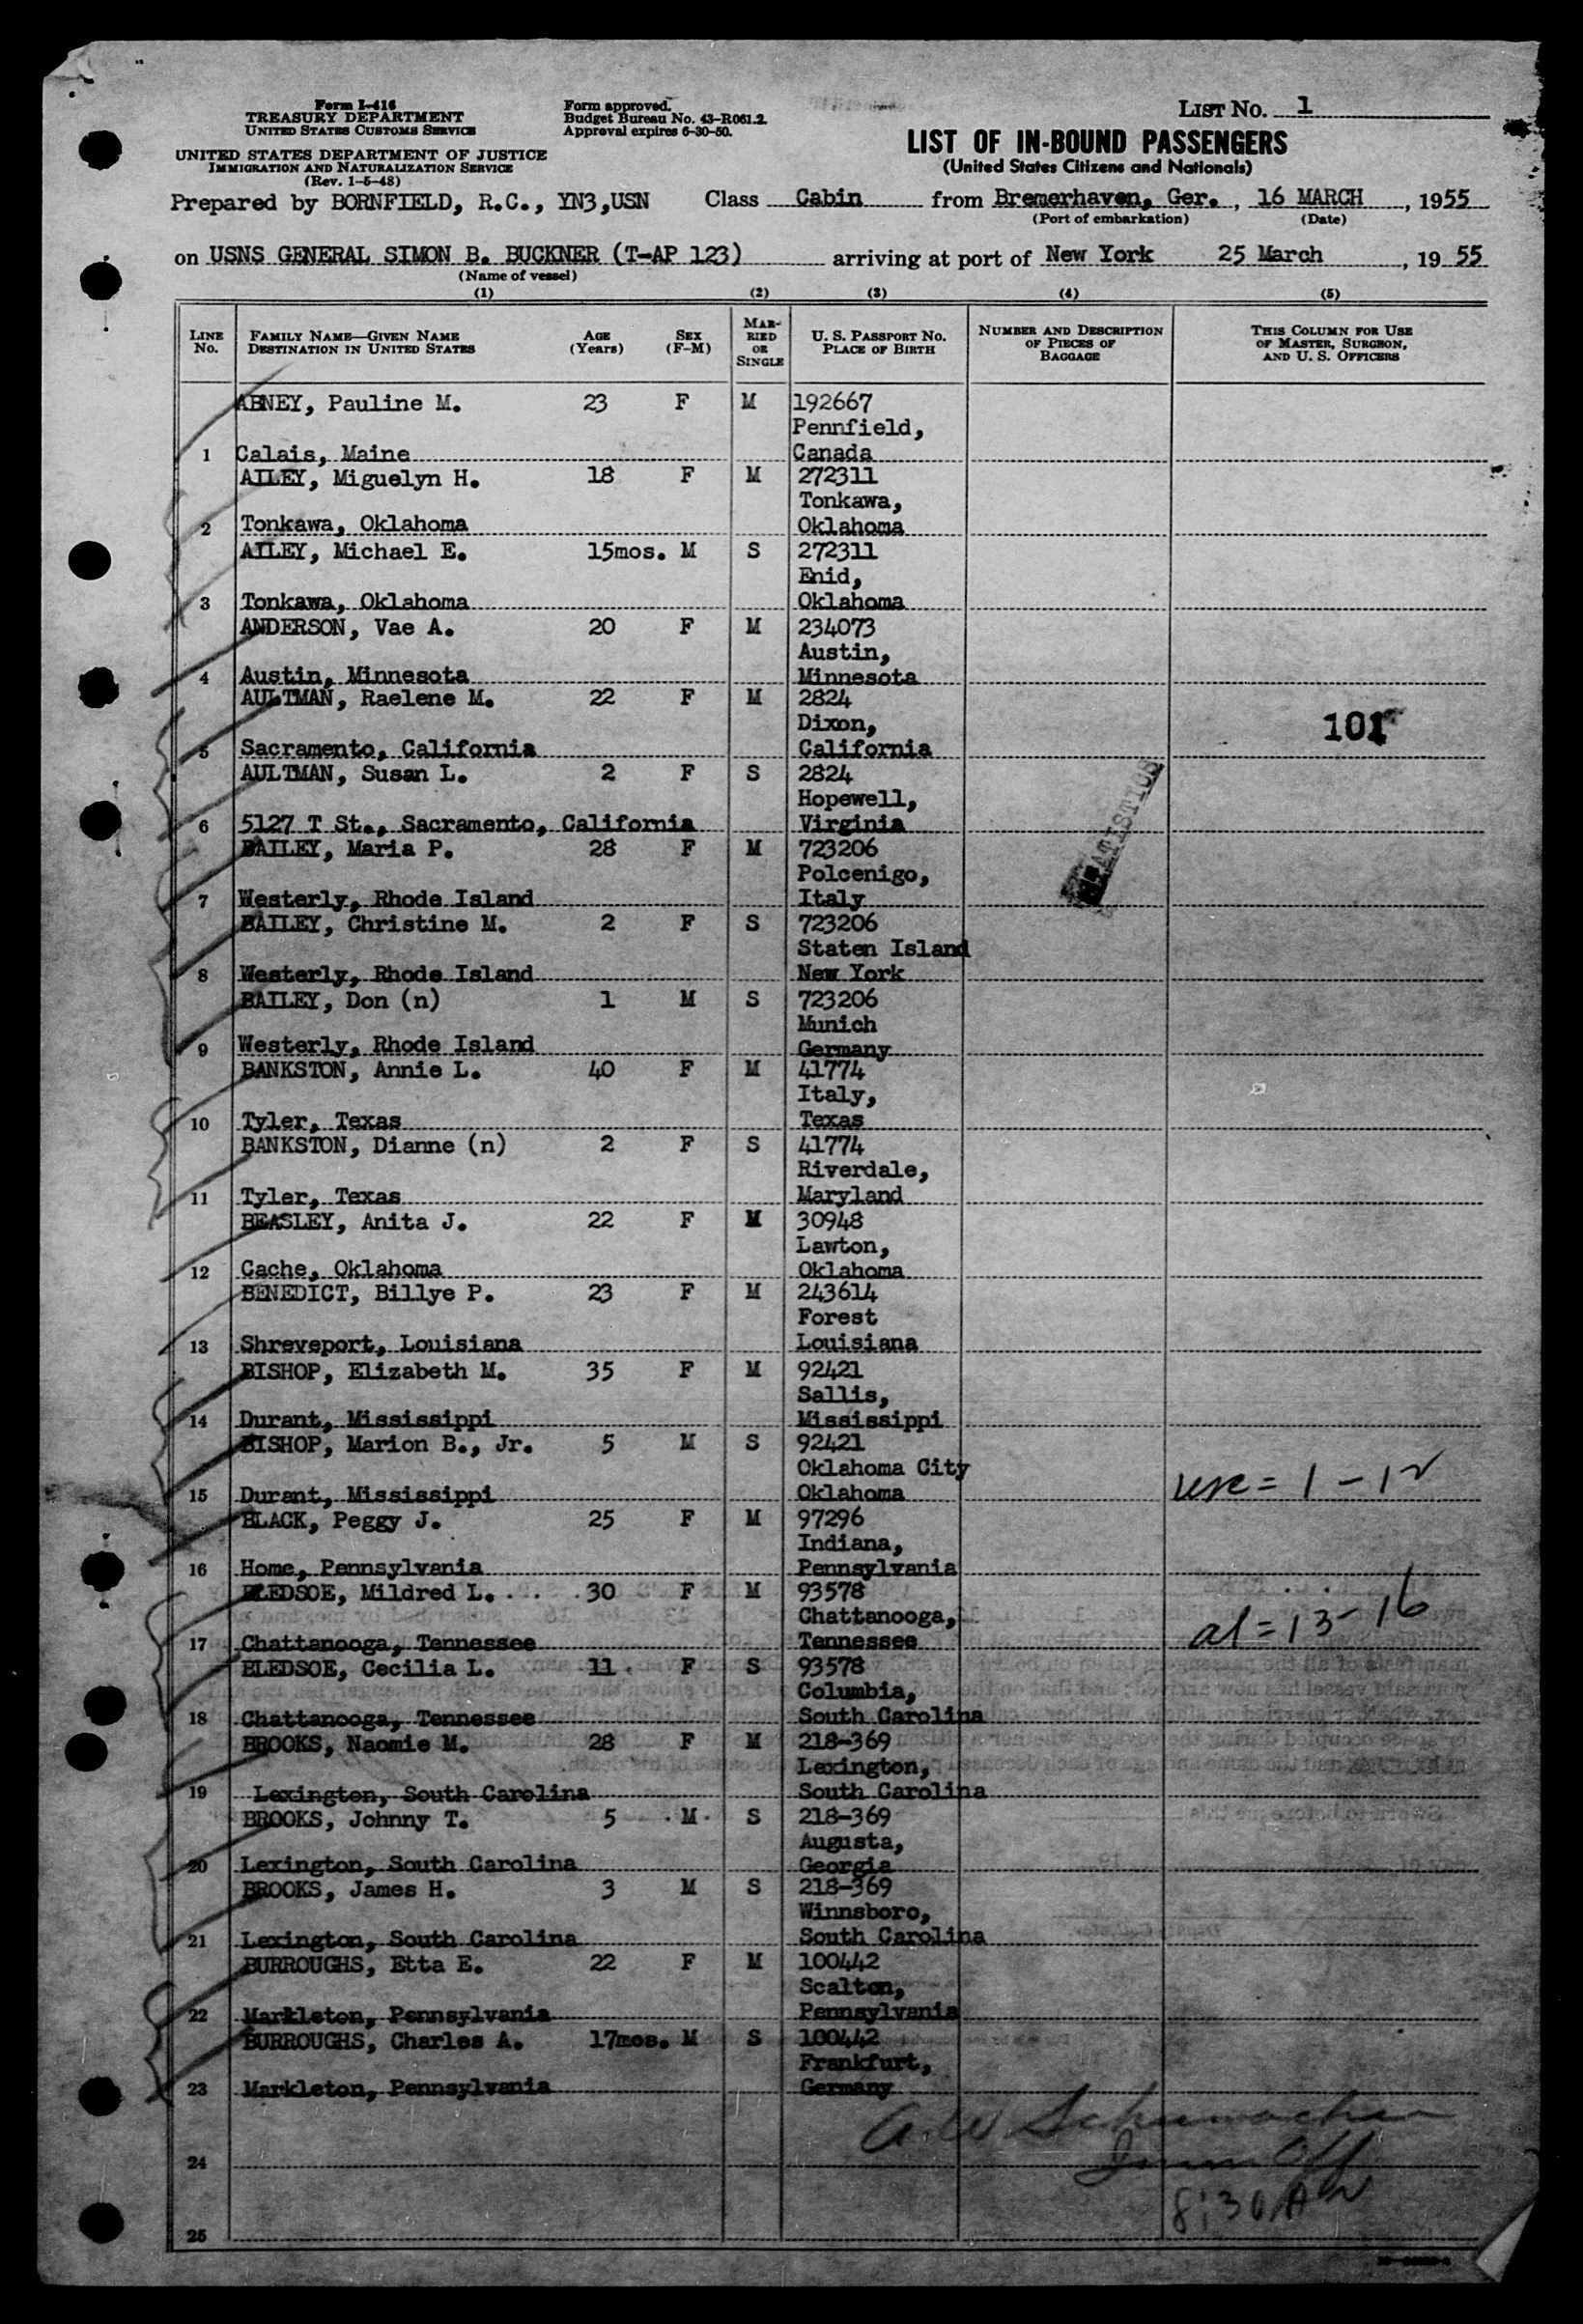 Form I-416
TREASURY DEPARTMENT
UNITED STATES CUSTOMS SERVICE
UNITED STATES DEPARTMENT OF JUSTICE
IMMIGRATION AND NATURALIZATION SERVICE
(Rev. 1-5-48)
Form approved.
Budget Bureau No. 43-R061.2.
Approval expires 6-30-50.
LIST NO. 1
LIST OF IN-BOUND PASSENGERS
(United States Citizens and Nationals)
Prepared by BORNFIELD, R.C., YN3,USN Class Cabin from Bremerhaven, Ger., 16 MARCH, 1955
(Port of embarkation) (Date)
on USNS GENERAL SIMON B. BUCKNER (T-AP 123) arriving at port of New York 25 March, 1955
(Name of vessel)
(1) (2) (3) (4) (5)
LINE NO. FAMILY NAME—GIVEN NAME DESTINATION IN UNITED STATES AGE (Years) SEX (F-M) MARRIED OR SINGLE U. S. PASSPORT NO. PLACE OF BIRTH NUMBER AND DESCRIPTION OF PIECES OF BAGGAGE THIS COLUMN FOR USE OF MASTER, SURGEON, AND U. S. OFFICERS
ABNEY, Pauline M. 23 F M 192667
Pennfield,
1 Calais, Maine Canada
AILEY, Miguelyn H. 18 F M 272311
Tonkawa,
2 Tonkawa, Oklahoma Oklahoma
AILEY, Michael E. 15mos. M S 272311
Enid,
3 Tonkawa, Oklahoma Oklahoma
ANDERSON, Vae A. 20 F M 234073
Austin,
4 Austin, Minnesota Minnesota
AULTMAN, Raelene M. 22 F M 2824
Dixon, 101
5 Sacramento, California California
AULTMAN, Susan L. 2 F S 2824
Hopewell,
6 5127 T St., Sacramento, California Virginia
BAILEY, Maria P. 28 F M 723206
Polcenigo,
7 Westerly, Rhode Island Italy
BAILEY, Christine M. 2 F S 723206
Staten Island
8 Westerly, Rhode Island New York
BAILEY, Don (n) 1 M S 723206
Munich
9 Westerly, Rhode Island Germany
BANKSTON, Annie L. 40 F M 41774
Italy,
10 Tyler, Texas Texas
BANKSTON, Dianne (n) 2 F S 41774
Riverdale,
11 Tyler, Texas Maryland
BEASLEY, Anita J. 22 F M 30948
Lawton,
12 Cache, Oklahoma Oklahoma
BENEDICT, Billye P. 23 F M 243614
Forest
13 Shreveport, Louisiana Louisiana
BISHOP, Elizabeth M. 35 F M 92421
Sallis,
14 Durant, Mississippi Mississippi
BISHOP, Marion B., Jr. 5 M S 92421
Oklahoma City
15 Durant, Mississippi Oklahoma usc = 1 - 12
BLACK, Peggy J. 25 F M 97296
Indiana,
16 Home, Pennsylvania Pennsylvania
BLEDSOE, Mildred L. 30 F M 93578
Chattanooga,
17 Chattanooga, Tennessee Tennessee al = 13 - 16
BLEDSOE, Cecilia L. 11 F S 93578
Columbia,
18 Chattanooga, Tennessee South Carolina
BROOKS, Naomie M. 28 F M 218-369
Lexington,
19 Lexington, South Carolina South Carolina
BROOKS, Johnny T. 5 M S 218-369
Augusta,
20 Lexington, South Carolina Georgia
BROOKS, James H. 3 M S 218-369
Winnsboro,
21 Lexington, South Carolina South Carolina
BURROUGHS, Etta E. 22 F M 100442
Scalton,
22 Markleton, Pennsylvania Pennsylvania
BURROUGHS, Charles A. 17mos. M S 100442
Frankfurt,
23 Markleton, Pennsylvania Germany
A.W Schumacher
24 Imm. Off.
8:30 AM
25